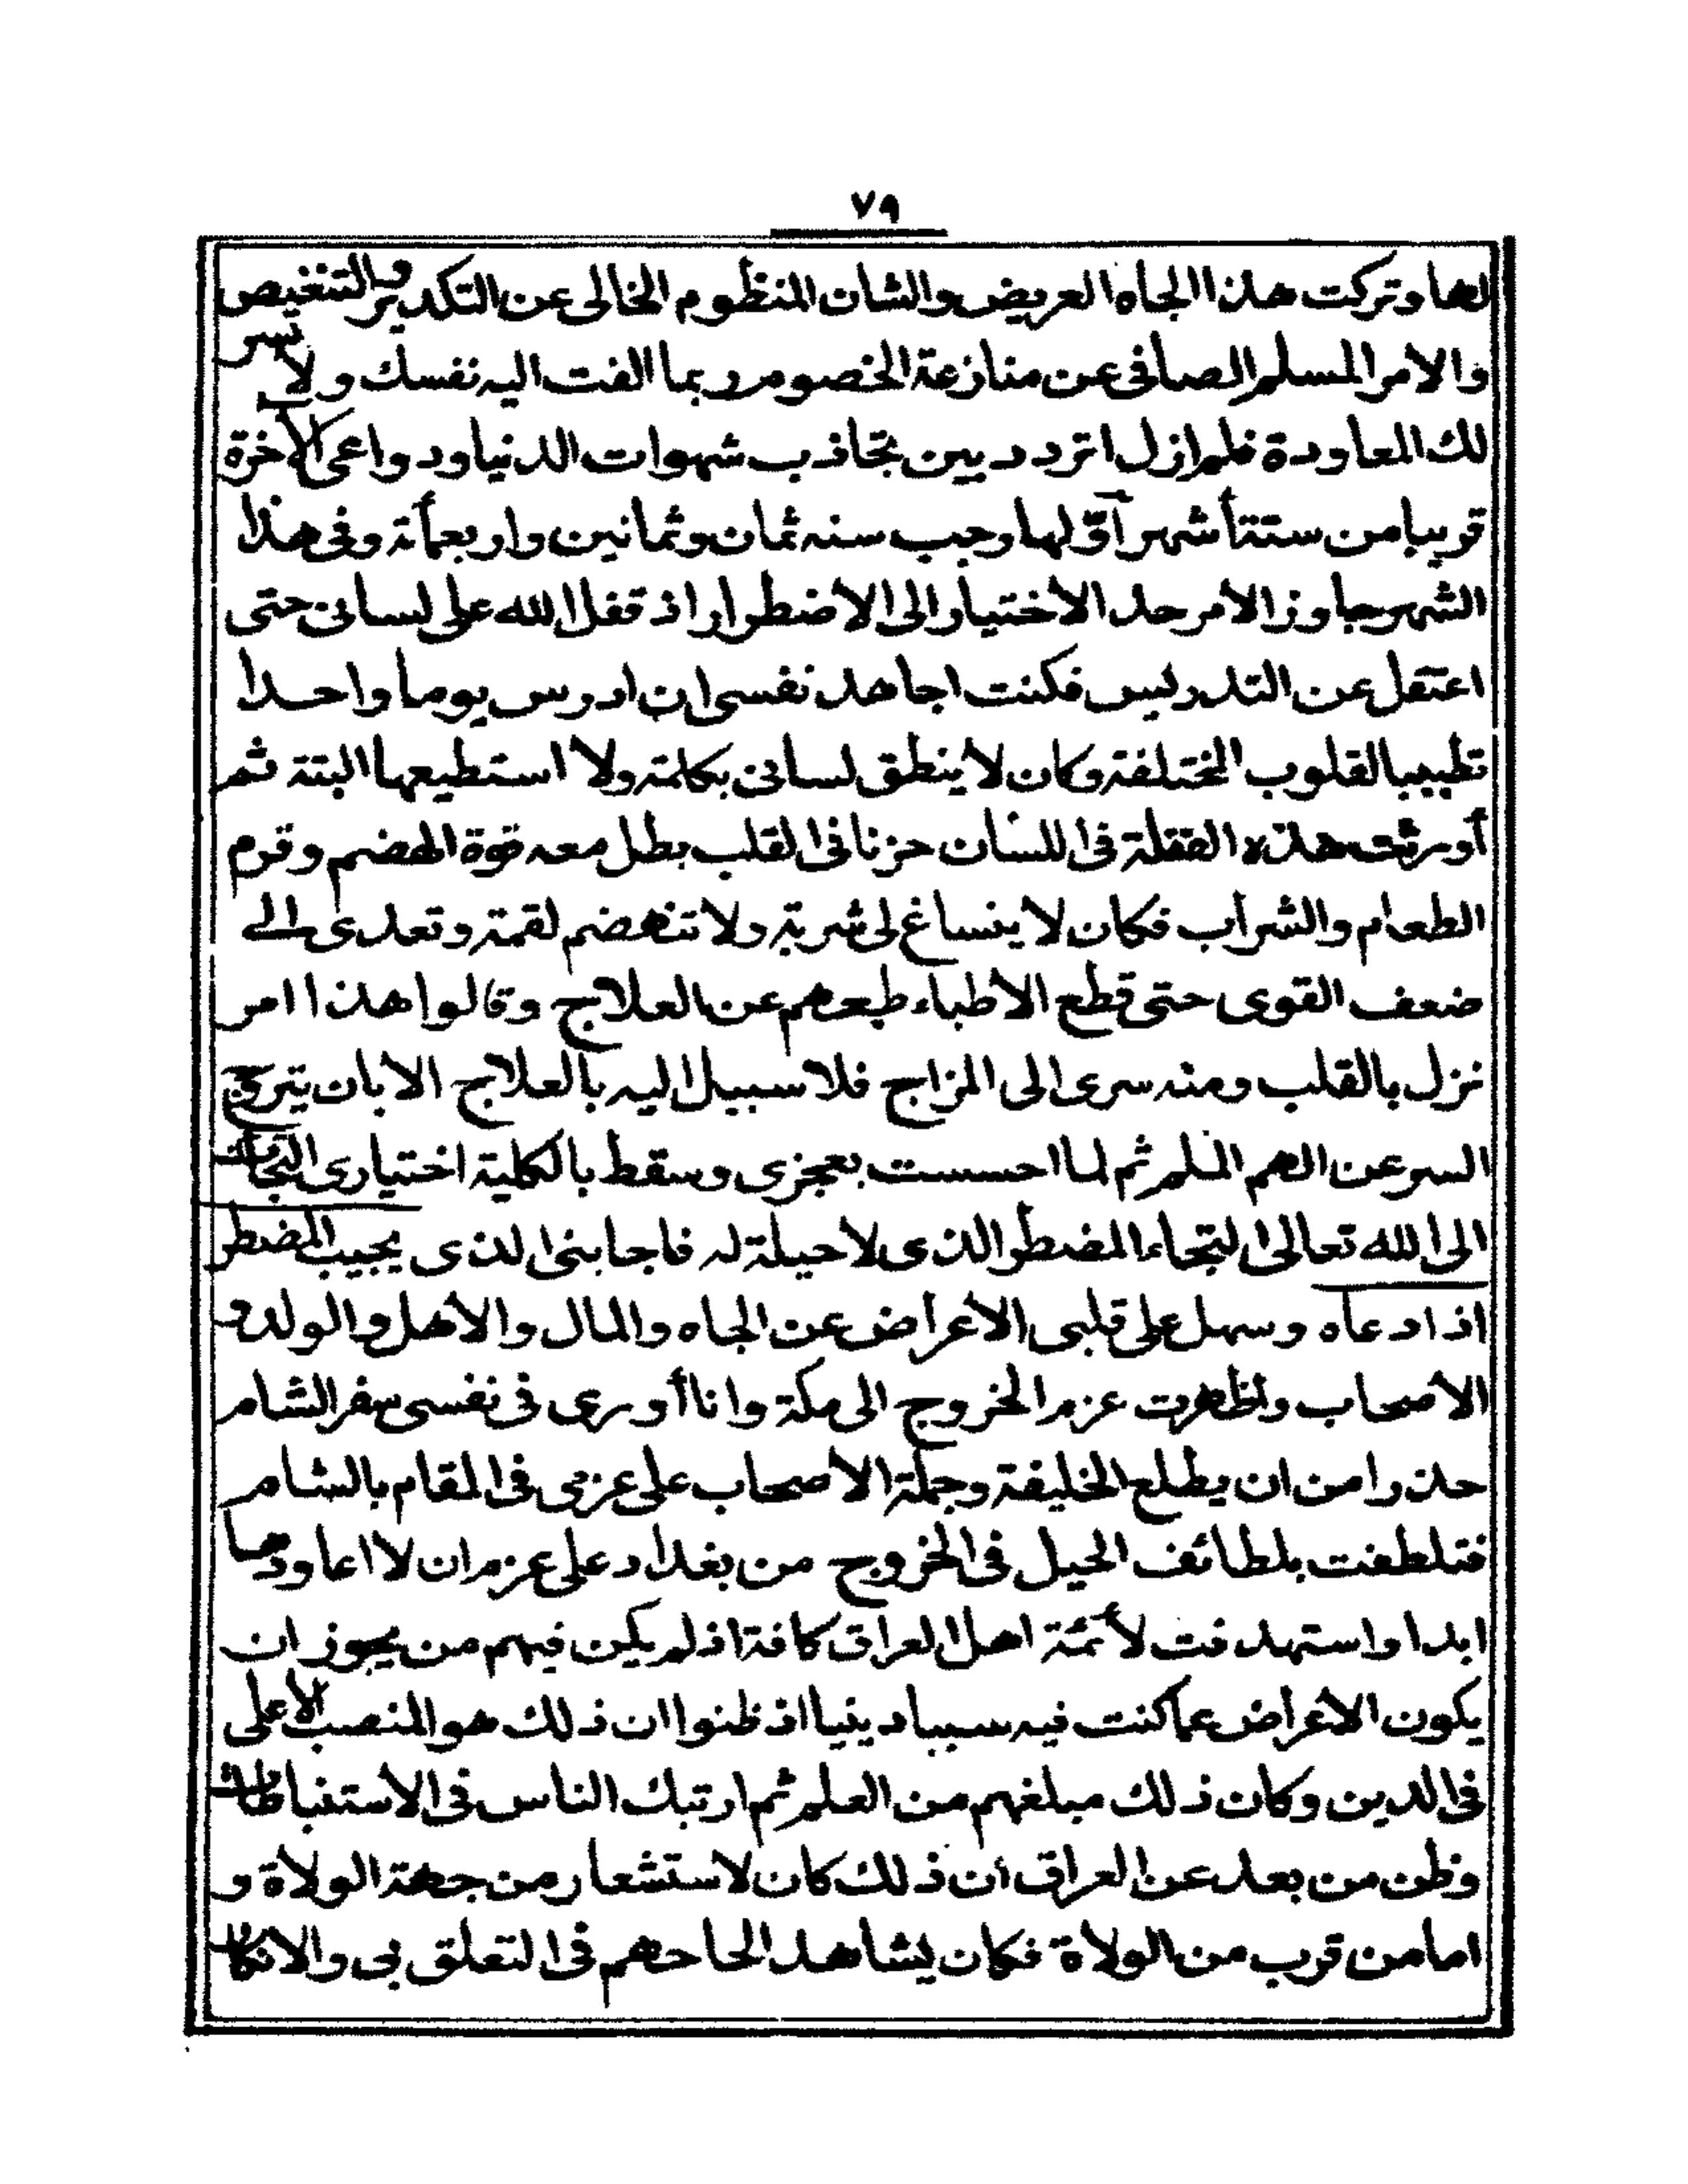 ٧٩
لها وتركت هذا الجاه العريض والشان المنظوم الخالى عن التكدير والتنغيص
والامر المسلم الصافى عن منازعة الخصوم ربما الفت اليه نفسك ولا يتيسر
لك المعاودة فلم ازل اتردد بين تجاذب شهوات الدنيا ودواعى الآخرة
قريبا من ستة أشهر آوّلها رجب سنه ثمان وثمانين واربعمأتة وفى هذا
الشهر جاوز الامر حد الاختيار الى الاضطرار اذ قفل الله على لسانى حتى
اعتقل عن التدريس فكنت اجاهد نفسى ان ادرس يوما واحدا
تطييبا لقلوب المختلفة وكان لا ينطق لسانى بكلمة ولا استطيعها البتة ثم
أورثت هذه القفلة فى اللسان حزنا فى القلب بطل معه قوة الهضم وقرم
الطعام والشراب فكان لا ينساغ لى شربة ولا تنهضم لقمة وتعدى الى
ضعف القوى حتى قطع الاطباء طمعهم عن العلاج وقالوا هذا امر
نزل بالقلب ومنه سرى الى المزاج فلا سبيل اليه بالعلاج الا بان يتروح
السر عن الهم الملم ثم لما احسست بعجزى وسقط بالكلية اختيارى التجأت
الى الله تعالى التجاء المضطر الذى لا حيلة له فاجابنى الذى يجيب المضطر
اذا دعاه وسهل على قلبى الأعراض عن الجاه والمال والأهل والولد و
الأصحاب واظهرت عزم الخروج الى مكة وانا أورى فى نفسى سفر الشام
حذرا من ان يطلع الخليفة وجملة الأصحاب على عزمى فى المقام بالشام
فتلطفت بلطائف الحيل فى الخروج من بغداد على عزم ان لا اعاودها
ابدا واستهدفت لأئمة اهل العراق كافة اذ لم يكن فيهم من يجوز ان
يكون الأعراض عما كنت فيه سببا دينيا اذ ظنوا ان ذلك هو المنصب الأعلى
فى الدين وكان ذلك مبلغهم من العلم ثم ارتبك الناس فى الأستنباطات
وظن من بعد عن العراق ان ذلك كان لاستشعار من جهة الولاة و
اما من قرب من الولاة فكان يشاهد الحاحهم فى التعلق بى والانكباب